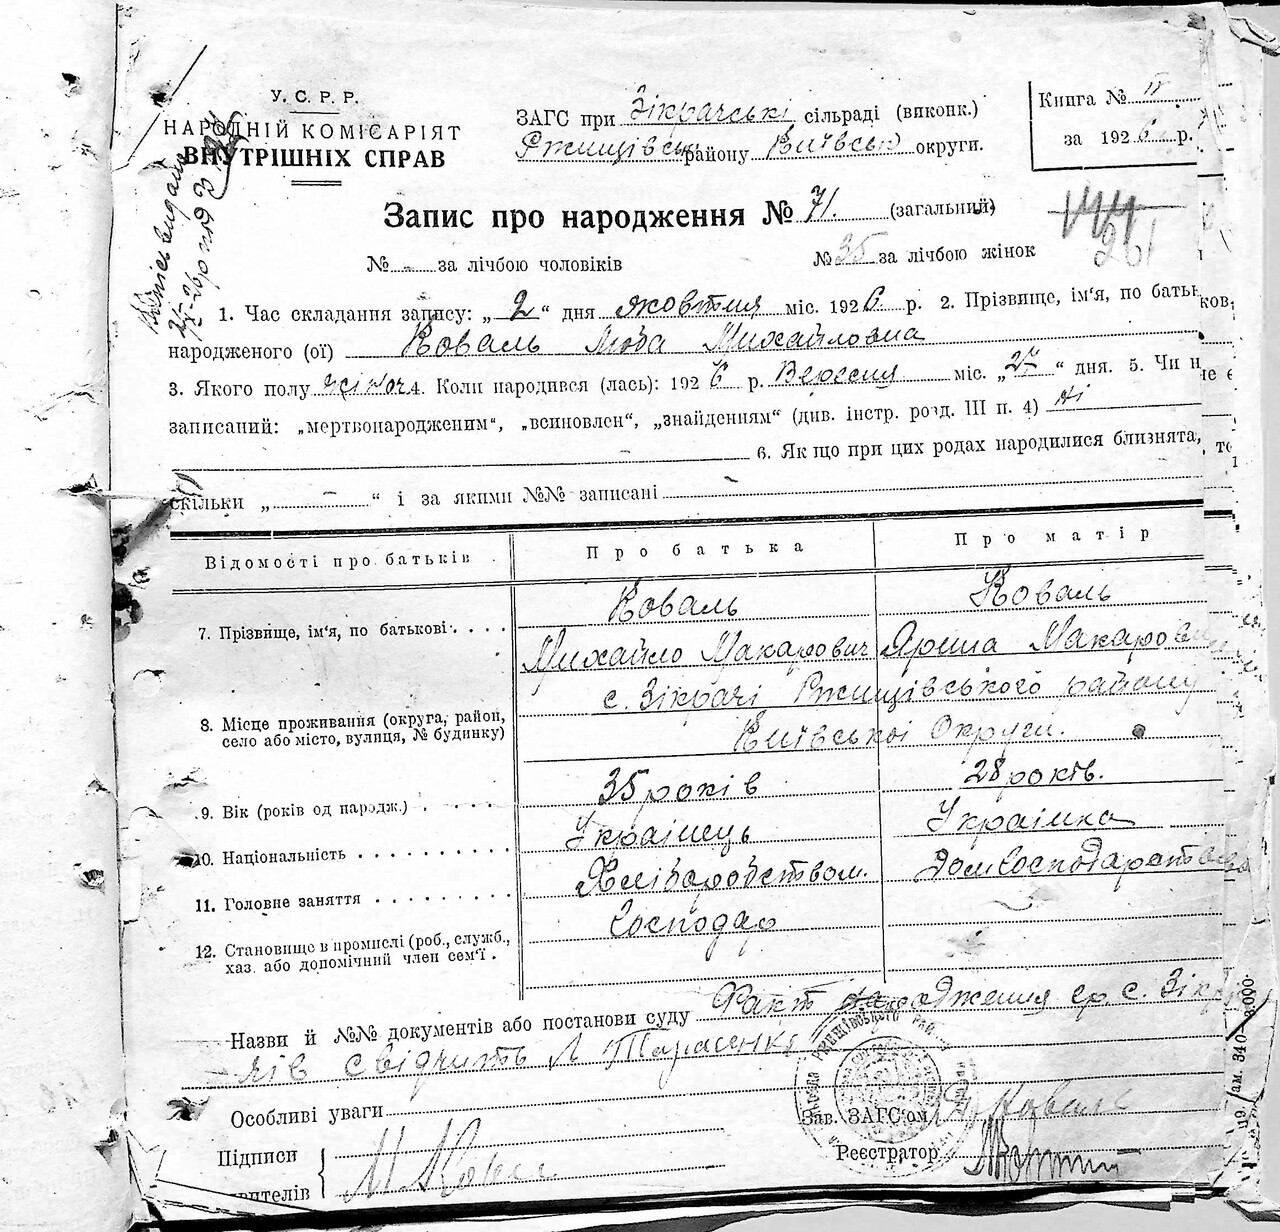 У. С. Р. Р.
НАРОДНІЙ КОМІСАРІЯТ
ВНУТРІШНІХ СПРАВ
ЗАГС при Зікрачські сільраді (виконк.)
Ржищівськ району Київськ округи.
Книга № II
за 1926 р.
Запис про народження № 71. (загальний)
261
№ - за лічбою чоловіків № 35 за лічбою жінок
1. Час складання запису: „2“ дня жовтня міс. 1926 р. 2. Прізвище, ім‘я, по батьков
народженого (ої) Коваль Люба Михайловна
3. Якого полу жіноч 4. Коли народився (лась): 1926 р. Вересня міс. „27“ дня. 5. Чи не є
записаний: „мертвонародженим“, „всиновлен“, „знайденням“ (див. інстр. розд. III п. 4) ні
6. Як що при цих родах народилися близнята, то
скільки „ – “ і за якими №№ записані –
Відомості про батьків Про батька Про матір
7. Прізвище, ім‘я, по батькові Коваль Коваль
Михайло Макарович Ярина Макаров
с. Зікрачі Ржищівського району
8. Місце проживання (округа, район,
село або місто, вулиця, № будинку)
Київської Округи.
9. Вік (років од народж.) 35 років 28 років.
10. Національність Українець Українка
11. Головне заняття Хліборобством. Домгосподарством
12. Становище в промислі (роб., служб.,
хаз. або допоміжний член сем‘ї. Господар
Назви й №№ документів або постанови суду Факт народження гр. с. Зікра
чів свідчить Тарасенко
Особливі уваги
Зав. ЗАГС‘ом Коваль
Підписи
Реєстратор
М. Коваль